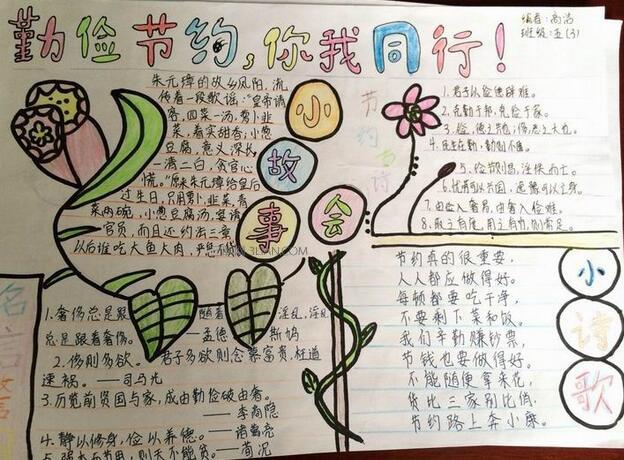 勤俭节约,你我同行!
编者:高洁
班级:五(3)
朱元璋的故乡凤阳,流
传着一段歌谣:"皇帝请
客,四菜一汤,萝卜韭
菜,着实甜香;小葱
豆腐,意义深长,
一清二白,贪官心
慌。"原来朱元璋给皇后
过生日,只用萝卜,韭菜,青
菜两碗,小葱豆腐汤,宴请
官员,而且还约法三章:
以后谁吃大鱼大肉,严惩不贷
小故事会
节约古诗
1.君子以俭德辟难。
2.克勤于邦,克俭于家。
3.俭,德之共也;侈,恶之大也。
4.民生在勤,勤则不匮。
5.俭节则昌,淫佚而亡。
6.忧劳可以兴国,逸豫可以亡身。
7.由俭入奢易,由奢入俭难。
8.取之有度,用之有节,则常足。
名言
1.奢侈总是跟随着淫乱,淫乱
总是跟着奢侈。——孟德斯鸠
2.侈则多欲。君子多欲则念慕富贵,枉道
速祸。——司马光
3.历览前贤国与家,成由勤俭破由奢。
——李商隐
4.静以修身,俭以养德。——诸葛亮
5.强本而节用,则天不能贫。——荀况
小诗歌
节约真的很重要,
人人都应做得好。
每顿都要吃干净,
不要剩下菜和饭。
我们辛勤赚钞票,
节钱也要做得好。
不能随便拿来花,
货比三家别比俏。
节约路上奔小康。